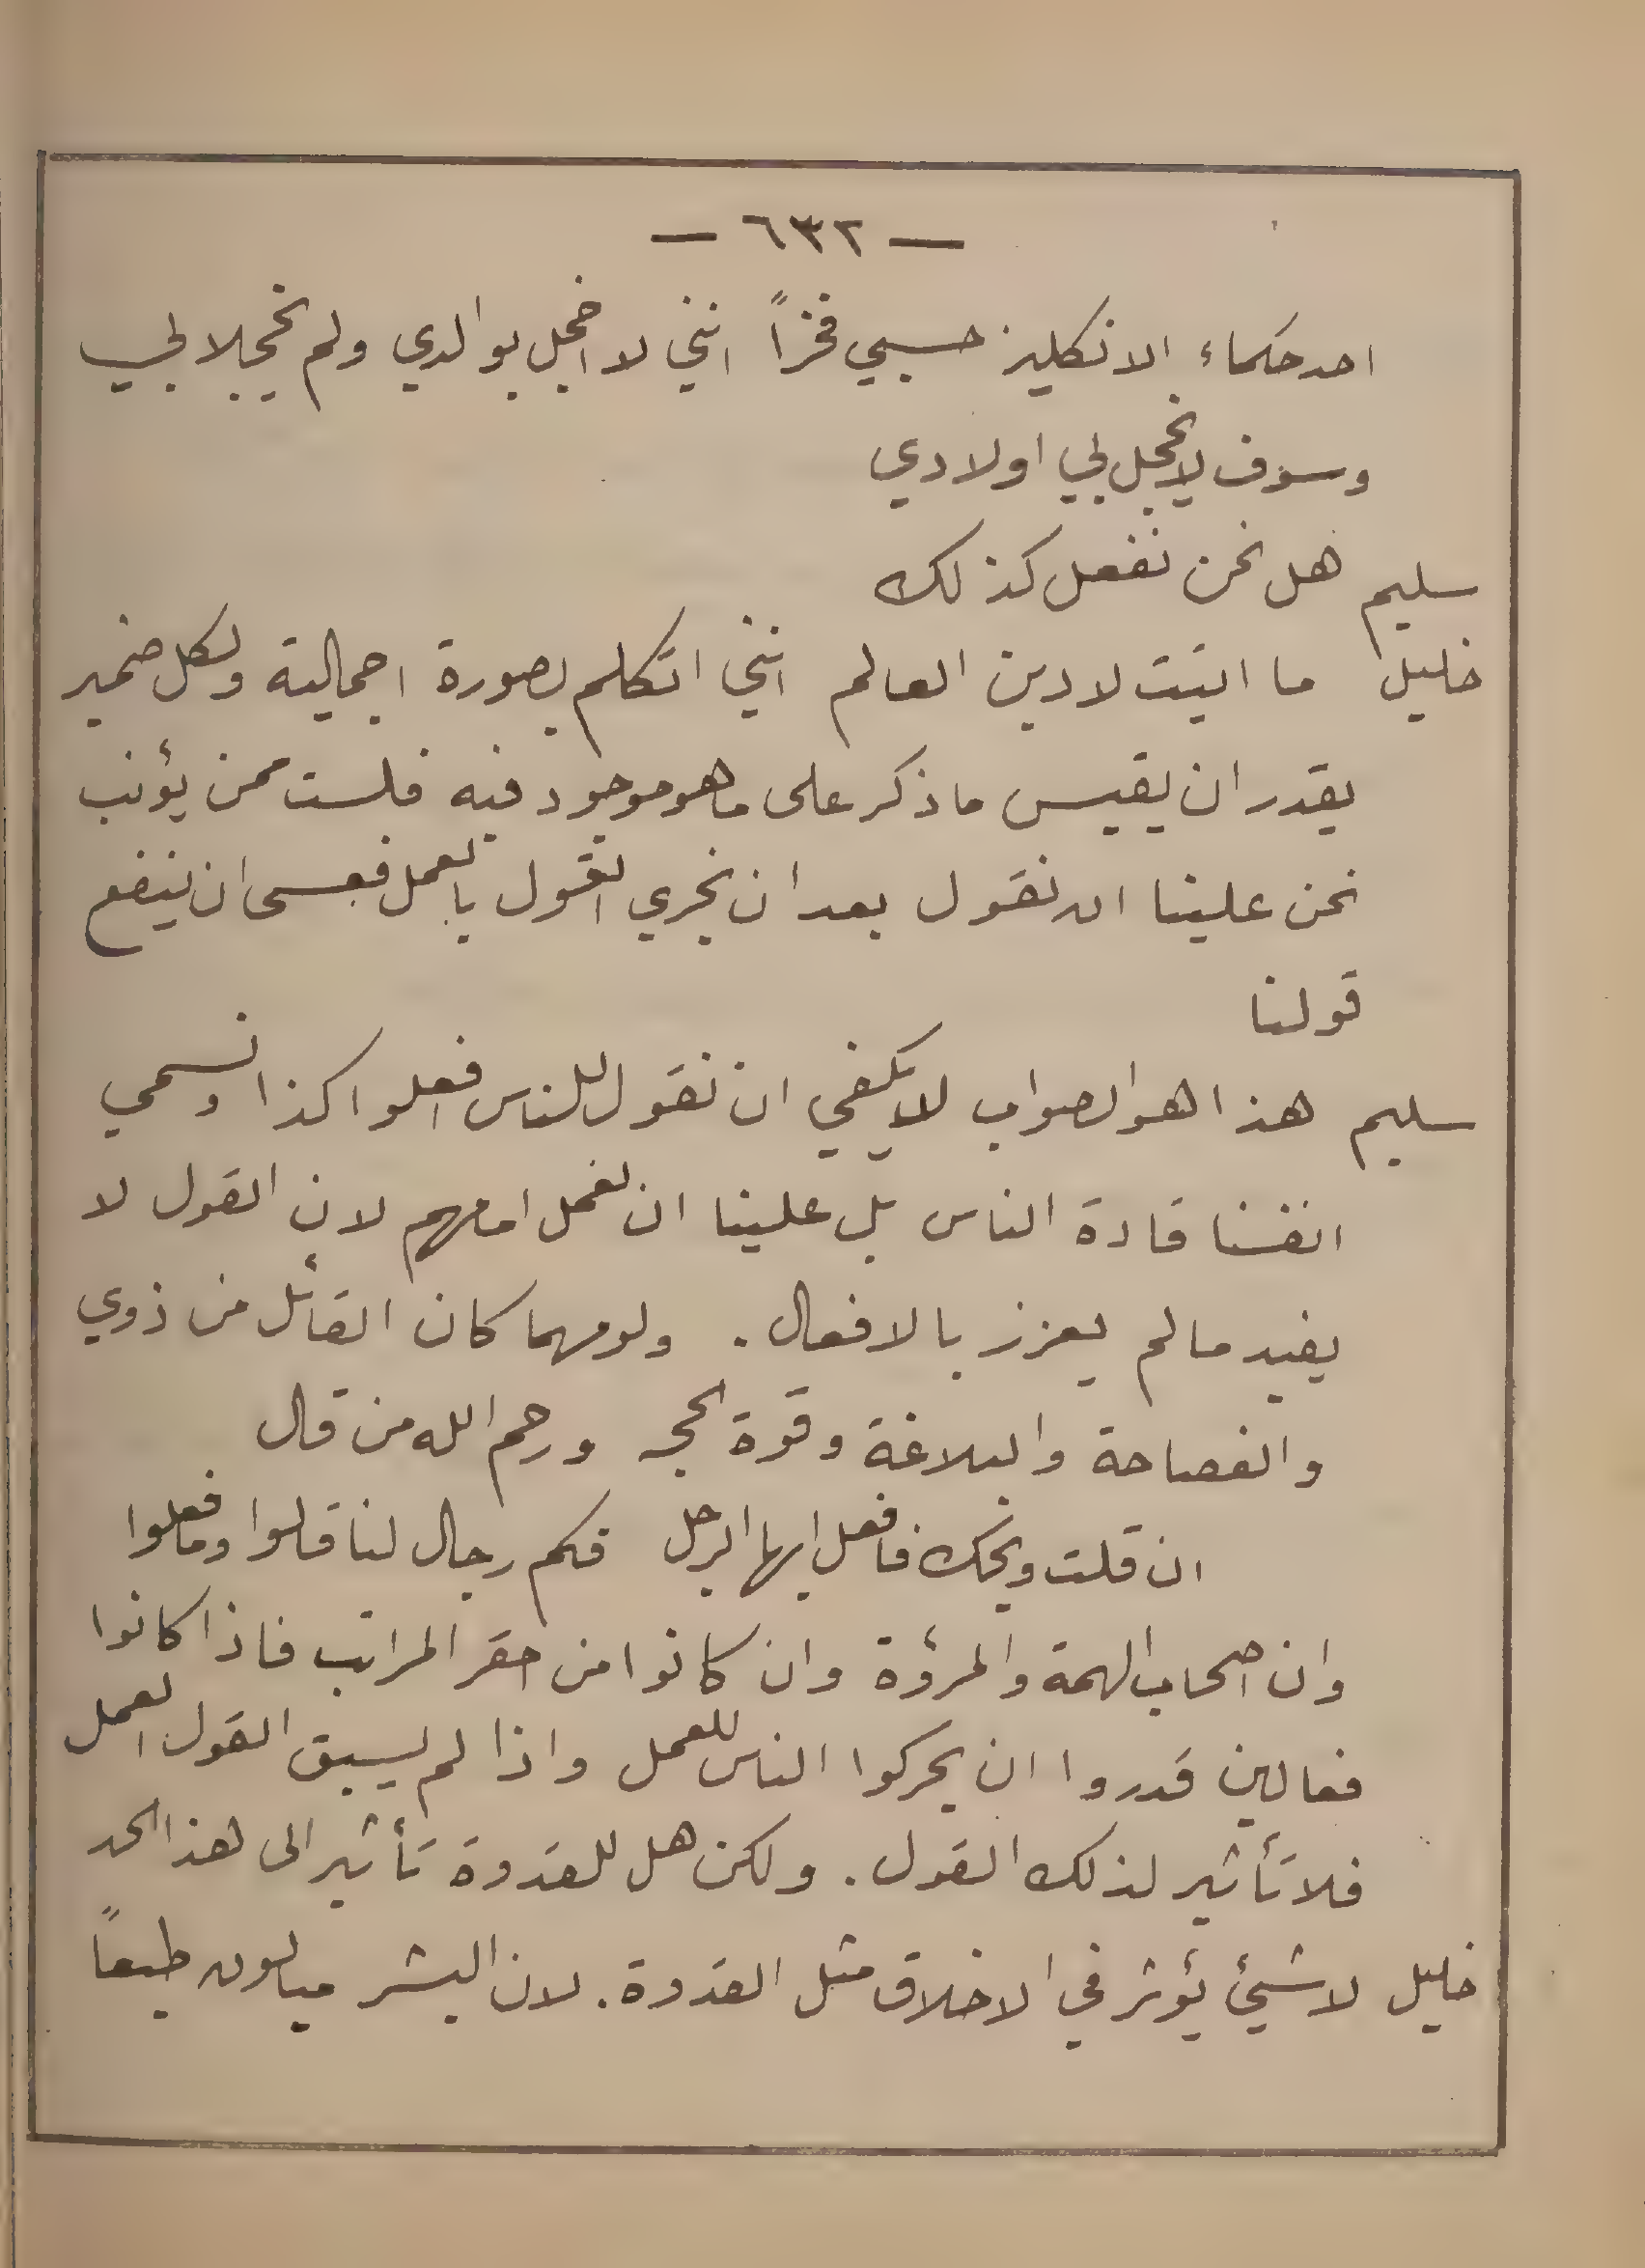 — ٦٣٢ —
احد حكماء الانكليز حسبي فخراً انني لا اخجل بوالدي ولم يخجلا بي
وسوف لا يخجل بي اولادي
سليم هل نحن نفعل كذلك
خليل ما اتيت لادين العالم انني اتكلم بصورة اجمالية ولكل ضمير
يقدر ان يقيس ما ذكر على ما هو موجود فيه فلست ممن يؤنب
نحن علينا ان نقول بعد ان نجري القول بالعمل فعسى ان ينفع
قولنا
سليم هذا هو الصواب لا يكفي ان نقول للناس افعلوا كذا ونسمي
انفسنا قادة الناس بل علينا ان نعمل امامهم لان القول لا
يفيد ما لم يعزز بالافعال . ولو مهما كان القائل من ذوي
والفصاحة والبلاغة وقوة الحجه ورحم الله من قال
ان قلت ويحك فافعل ايها الرجل فكم رجال لنا قالوا وما فعلوا
وان اصحاب الهمة والمرؤة وان كانوا من احقر المراتب فاذا كانوا
فعالين قدروا ان يحركوا الناس للعمل واذا لم يسبق القول العمل
فلا تأثير لذلك القول . ولكن هل للقدوة تأثير الى هذا الحد
خليل لا شيئ يؤثر في الاخلاق مثل القدوة . لان البشر ميالون طبعاً